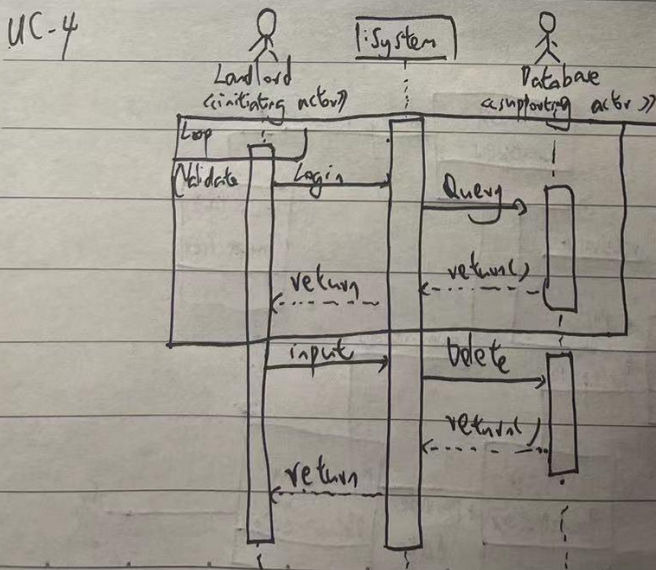 UC-4
Landlord
<<initiating actor>>
:System
Database
<<supporting actor>>
Loop
(Validate
Login
Query
return()
return
input
Delete
return()
return